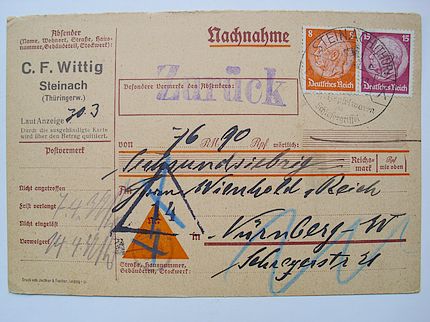 Absender
(Name, Wohnort, Straße, Haus-
nummer, Gebäudeteil, Stockwerk):
Nachnahme
C. F. Wittig
Steinach
(Thüringerw.)
Laut Anzeige 20.3
Durch die ausgehändigte Karte
wird über den Betrag quittiert.
Postvermerk
Nicht angetroffen
Frist verlangt
Nicht eingelöst
Verweigert
Besondere Vermerke des Absenders:
Zurück
8
Deutsches Reich
15
Deutsches Reich
STEINACH
Schiefergriffel
76 RM 90 Rpf wörtlich:
von
Reichs-
mark
Rpf
wie oben
Firma Wienhold, Reich
4
in
Nürnberg-W
Straße, Hausnummer,
Gebäudeteil, Stockwerk: